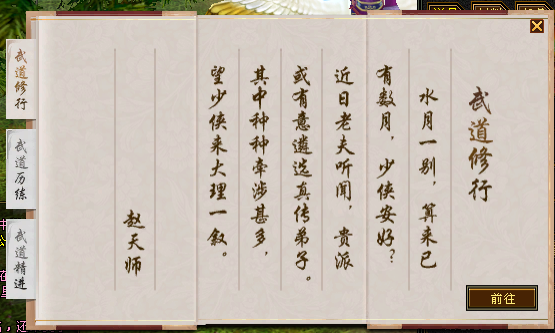 武道修行
水月一别，算来已
有数月，少侠安好？
近日老夫听闻，贵派
或有意遴选真传弟子。
其中种种牵涉甚多，
望少侠来大理一叙。
赵天师
武道修行
武道历练
武道精进
前往